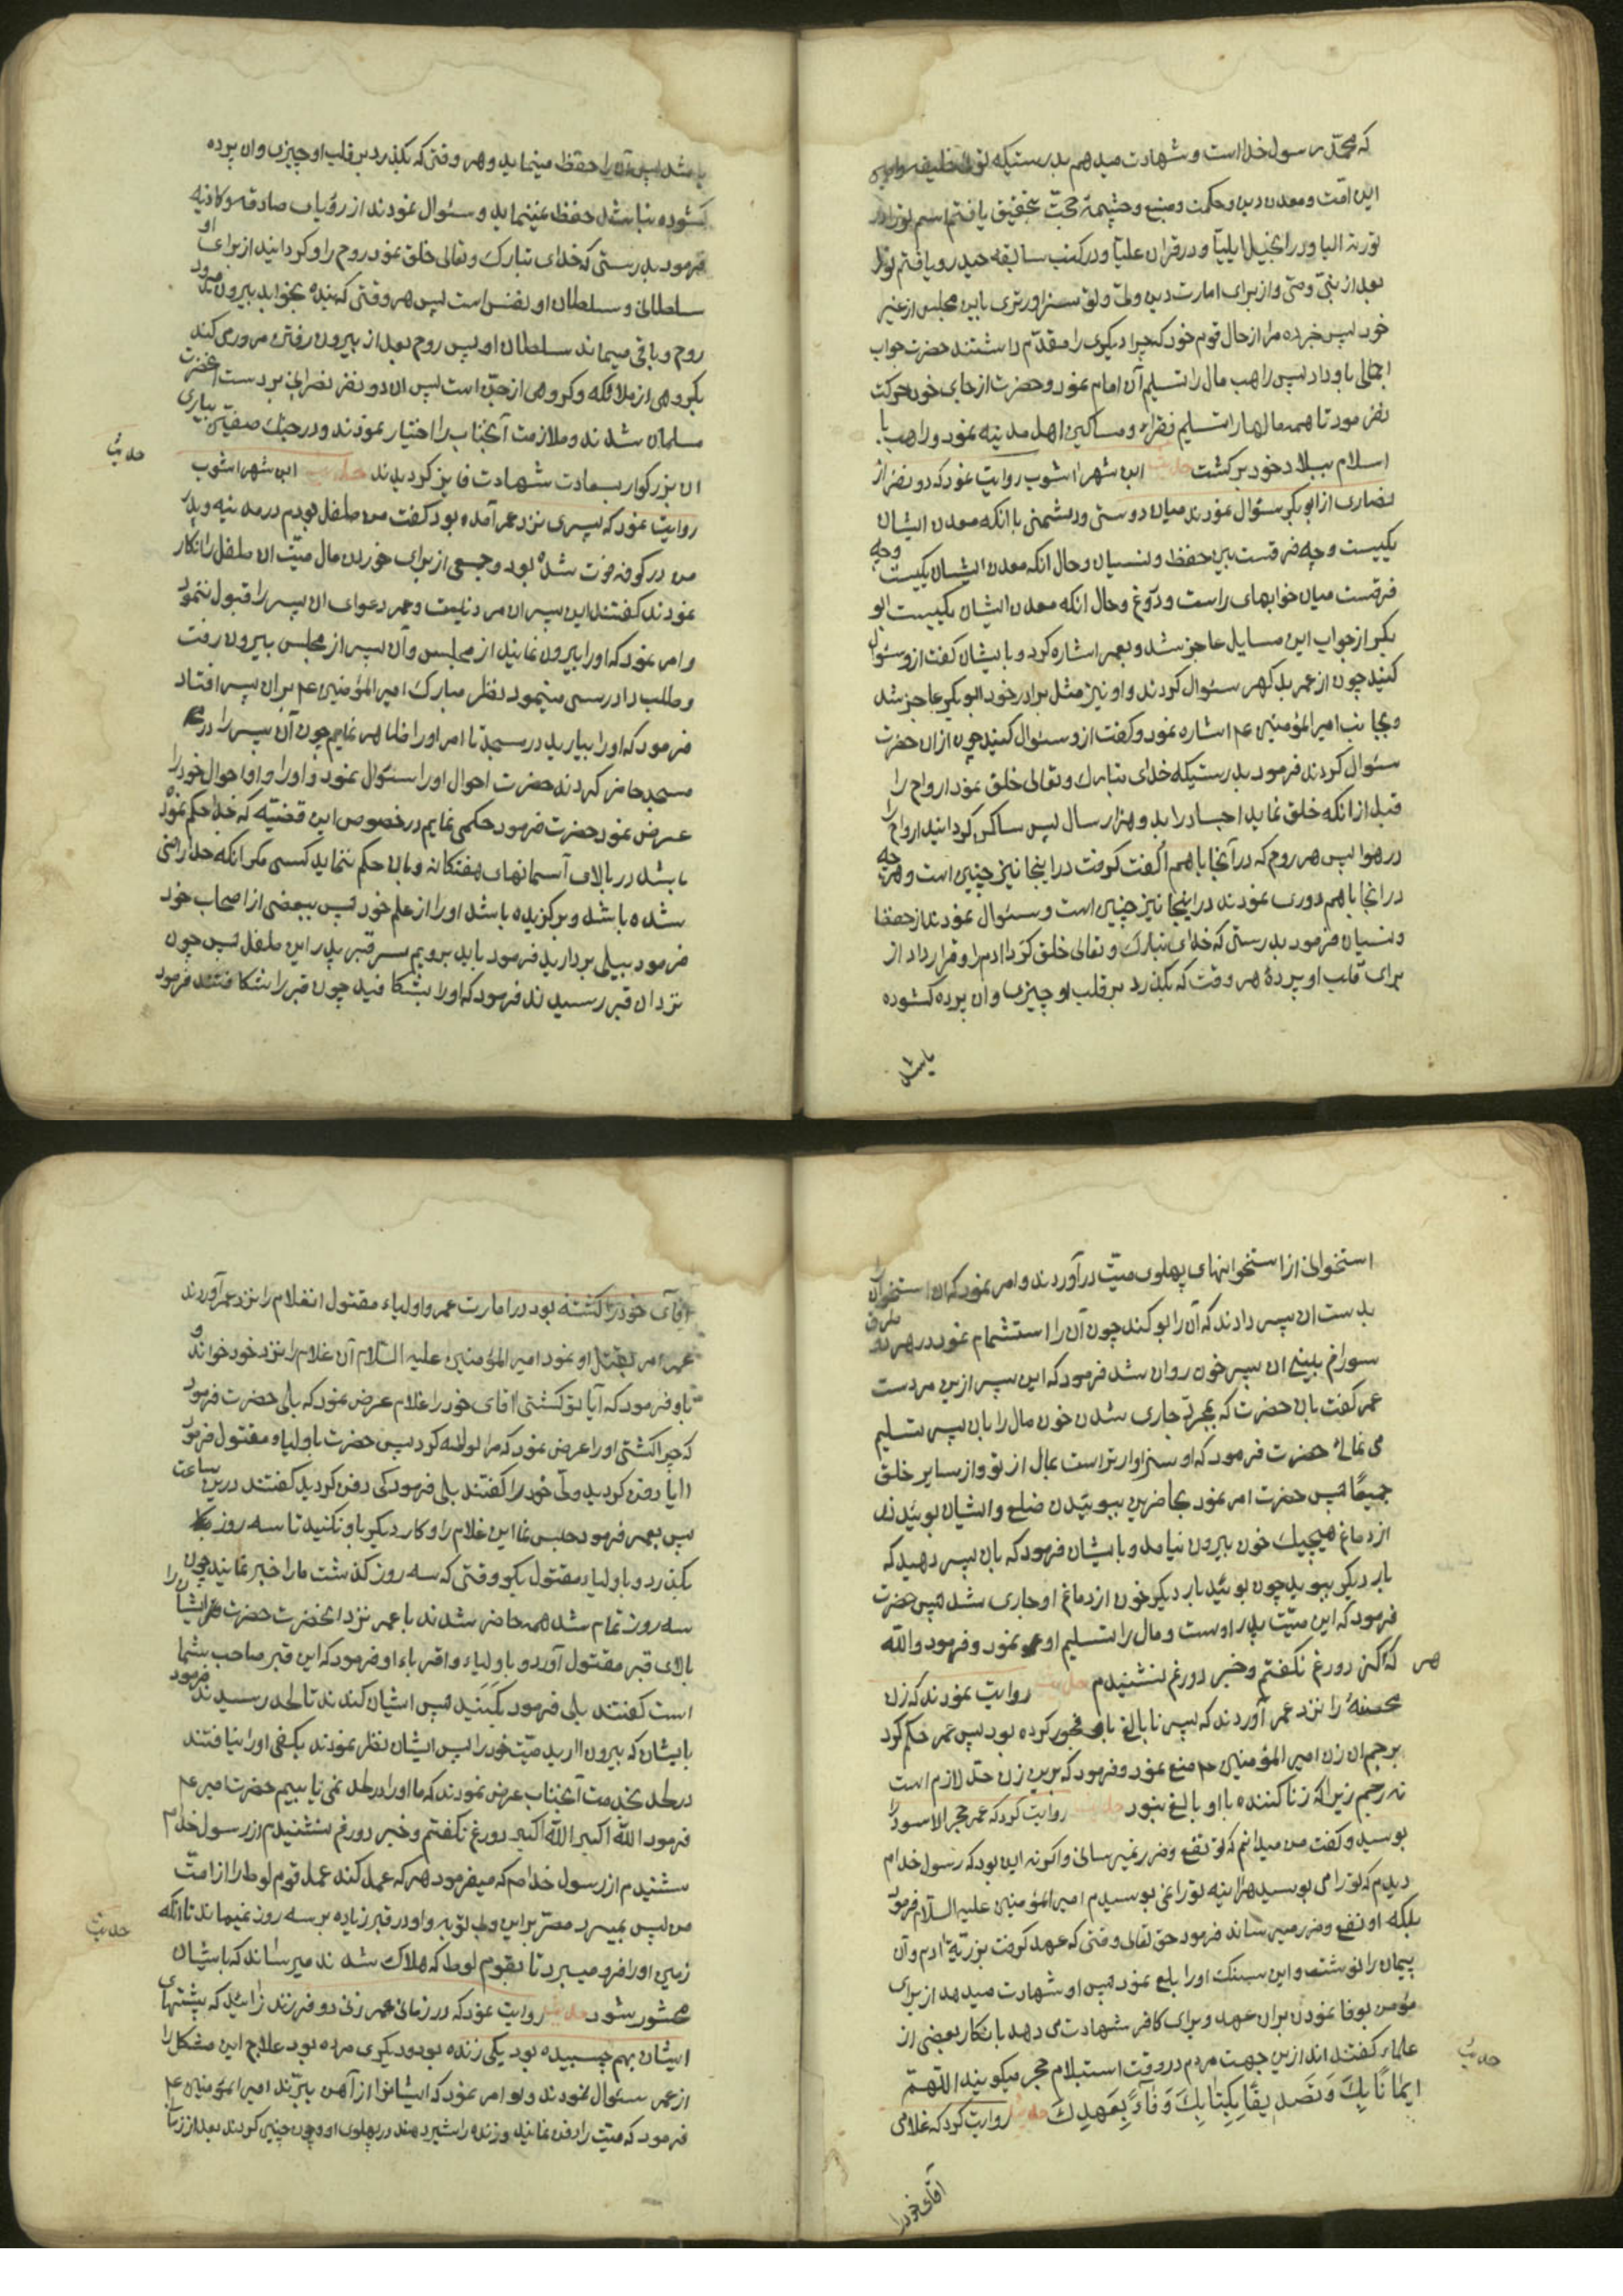 که محمّد رسول خداست و شهادت میدهم بدرستیکه توئی خلیفه و امین
این امّت و معدن دین و حکمت و منبع و چشیمهٔ حجّت بتحقیق یافتم اسم تو را در
توریة الیا و در انجیل ایلیّا و در قران علیّا و در کتب سابقه حیدر و یافتم تو را
بعد از نبیّ وصیّ و از برای امارت دین ولیّ و تو سزاورتری باین مجلس از غیر
خود پس خبر ده مرا از حال قوم خود که چرا دیگری را مقدّم داشتند حضرت جواب
اجمالی باو داد پس راهب مال را تسلیم آن امام نمود و حضرت از جای خود حرکت
نفرمود تا همه مالها را تسلیم فقراء و مساکین اهل مدینه نمود و راهب با
اسلام ببلاد خود برگشت حدیث ابن شهر اشوب روایت نمود که دو نفر از
نصاری از ابو بکر سئوال نمودند میان دوستی و دشمنی با انکه معدن ایشان
یکیست و چه فرقست بین حفظ و نسیان و حال انکه معدن ایشان یکیست و چه
فرقست میان خوابهای راست و دروغ و حال انکه معدن ایشان یکیست ابو
بکر از جواب این مسایل عاجز شد و بعمر اشاره کرد و بایشان کفت ازو سئوال
کنید چون از عمر بد کهر سئوال کردند و او نیز مثل برادر خود ابو بکر عاجز شد
و بجانب امیر المؤمنین عم اشاره نمود و کفت ازو سئوال کنید چون ازان حضرت
سئوال کردند فرمود بدرستیکه خدای تبارک و تعالی خلق نمود ارواح را
قبل از انکه خلق نماید اجساد را بدو هزار سال پس ساکن کردانید ارواح را
در هوا پس هر روح که در آنجا باهم اُلفت کرفت در اینجا نیز چنین است و هر چه
در انجا باهم دوری نمودند در اینجا نیز چنین است و سئوال نمودند از حفظ
و نسیان فرمود بدرستی که خدای تبارک و تعالی خلق کرد ادم را و قرار داد از
برای قلب او پردهٔ هر وقت که بکذرد بر قلب او چیزی و ان پرده کشوده
باشد
باشد پس آن را حفظ مینماید و هر وقتی که بکذرد بر قلب او چیزی و ان پرده
کشوده نباشد حفظ نمینماید و سئوال نمودند از رؤیای صادقه و کاذبه
فرمود بدرستی که خدای تبارک و تعالی خلق نمود روح را و کردانید از برای او
سلطانی و سلطان او نفس است پس هر وقتی که بنده بخوابد بیرون میرود
روح و باقی میماند سلطان او پس روح بعد از بیرون رفتن مرور میکند
بکروهی از ملائکه و کروهی از جنّ است پس ان دو نفر نصرانی بر دست انحضرت
مسلمان شدند و ملازمت آنجناب را اختیار نمودند و در جنک صفیّن بیاری
ان بزرکوار بسعادت شهادت فایز کردیدند حدیث ابن شهر اشوب
حدیث
روایت نمود که پسری نزد عمر آمده بود کفت من طفل بودم در مدینه و پدر
من در کوفه فوت شده بود و جمعی از برای خوردن مال میّت ان طفل را انکار
نمودند کفتند این پسر ان مرد نیست و عمر دعوای ان پسر را قبول ننمود
و امر نمود که او را بیرون نمایند از مجلس و آن پسر از مجلس بیرون رفت
و طلب دادرسی مینمود نظر مبارک امیر المؤمنین عم بران پسر افتاد
فرمود که او را بیارید در مسجد تا امر او را ظاهر نمایم چون آن پسر را در
مسجد حاضر کردند حضرت احوال او را سئوال نمود و او احوال خود را
عرض نمود حضرت فرمود حکمی نمایم در خصوص این قضیّه که خدا حکم نموده
باشد در بالای آسمانهای هفتکانه و بان حکم ننماید کسی مکر انکه خدا راضی
شده باشد و برکزیده باشد او را از علم خود پس ببعضی از اصحاب خود
فرمود بیلی بردارید فرمود باید برویم بسر قبر پدر این طفل پس چون
نزد ان قبر رسیدند فرمود که او را بشکافید چون قبر را شکافتند فرمود
استخوانی از استخوانهای پهلوی میّت در آوردند و امر نمود که ان استخوان را
بدست ان پسر دادند که آن را بو کند چون آن را استشمام نمود در هر دو طرف
سوراخ بینی ان پسر خون روان شد فرمود که این پسر ازین مردست
عمر کفت بان حضرت که بمجرّد جاری شدن خون مال را بان پسر تسلیم
می نمائی حضرت فرمود که او سزاوارتر است بمال از تو و از سایر خلق
جمیعًا پس حضرت امر نمود بحاضرین ببوئیدن ضلع و ایشان بوئیدند
از دماغ هیچیک خون بیرون نیامد و بایشان فرمود که بان پسر دهید که
بار دیکر ببوید چون بوئید بار دیکر خون از دماغ او جاری شد پس حضرت
فرمود که این میّت پدر اوست و مال را تسلیم او نمود و فرمود والله
هر که کز دورغ نکفتم و خبر دورغ نشنیدم حدیث روایت نمودند که زن
محصنهٔ را نزد عمر آوردند که پسر نابالغ باو فجور کرده بود پس عمر حکم کرد
برجم ان زن امیر المؤمنین عم منع نمود و فرمود که برین زن حدّ لازم است
نه رجم زیرا که زنا کننده با او بالغ نبود حدیث روایت کرد که عمر حجر الاسود را
بوسید و کفت من میدانم که تو نفع و ضرر نمیرسانی و اکر نه این بود که رسول خدا م
دیدم که تو را می بوسید هراینه تو را نمی بوسیدم امیر المؤمنین علیه السلام فرمود
بلکه او نفع و ضرر میرساند فرمود حق تعالی وقتی که عهد کرفت بذریّهٔ ادم و آن
پیمان را نوشت و این سنک او را بلع نمود پس او شهادت میدهد از برای
مؤمن بوفا نمودن بران عهد و برای کافر شهادت می دهد بانکار بعضی از
علماء کفته اند ازین جهت مردم در وقت استبلام حجر میکویند اللّهمّ
حدیث
ایمانًا بِکَ وَ تَصدیقًا بِکِتابِکَ وَ وَفاءً بِعَهدِکَ حدیث روایت کرد که غلامی
آقای خود را
اقای خود را کشته بود در امارت عمر و اولیاء مقتول انغلام را نزد عمر آوردند
عمر امر بقتل او نمود امیر المؤمنین علیه السّلام آن غلام را نزد خود خواند و
باو فرمود که آیا تو کشتی اقای خود را غلام عرض نمود که بلی حضرت فرمود
که چرا کشتی او را عرض نمود که مرا لوطه کرد پس حضرت باولیاء مقتول فرمود
ایا دفن کردید ولیّ خود را کفتند بلی فرمود کی دفن کردید کفتند درین ساعت
پس بعمر فرمود حبس نما این غلام را و کار دیکر باو نکنید تا سه روز
بکذرد و باولیاء مقتول بکو وقتی که سه روز کذشت ما را خبر نمایند چون
سه روز تمام شد همه حاضر شدند با عمر نزد انحضرت حضرت ایشان را
بالای قبر مقتول آورد و باولیاء و اقرباء او فرمود که این قبر صاحب شما
است کفتند بلی فرمود بکَنَید پس ایشان کندند تا بلحد رسیدند فرمود
بایشان که بیرون ارید میّت خود را پس ایشان نظر نمودند بکفن او را نیافتند
در لحد بخدمت آنجناب عرض نمودند که ما او را در لحد نمی یابیم حضرت امیر عم
فرمود الله اکبر الله اکبر دورغ نکفتم و خبر دورغ نشنیدم از رسول خدا م
شنیدم از رسول خدا ص که میفرمود هر که عمل کند عمل قوم لوط را از امت
من پس بمیرد مصرّ براین و بی توبه و او در قبر زیاده بر سه روز نمیماند تا انکه
حدیث
زمین او را فرو میبرد تا بقوم لوط که هلاک شدند میرساند که با ایشان
محشور شود حدیث روایت نمود که در زمانی عمر زنی دو فرزند زائید که پشتهای
ایشان بهم چسبیده بود یکی زنده بود و دیکری مرده بود علاج این مشکل را
از عمر سئوال نمودند و او امر نمود که ایشانرا از آهن ببّرند امیر المؤمنین عم
فرمود که میّت را دفن نمائید و زنده را شیر دهند در پهلوی او و چون چنین کردند بعد از زمان